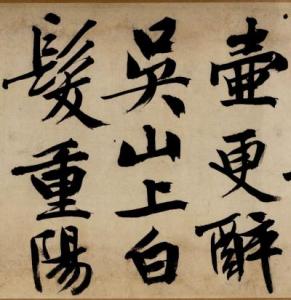 壺更醉
吳山上白
髮重陽